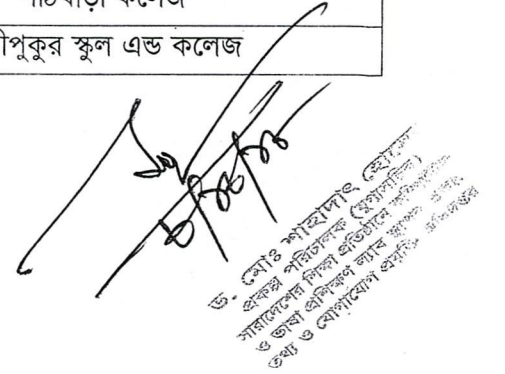 কলেজ
পুকুর স্কুল এন্ড কলেজ
ড. মোঃ শাহাদাৎ হোসেন
প্রকল্প পরিচালক (যুগ্মসচিব)
সারাদেশের শিক্ষা প্রতিষ্ঠানে
ও ভাষা প্রশিক্ষণ ল্যাব স্থাপন
তথ্য ও যোগাযোগ প্রযুক্তি অধিদপ্তর